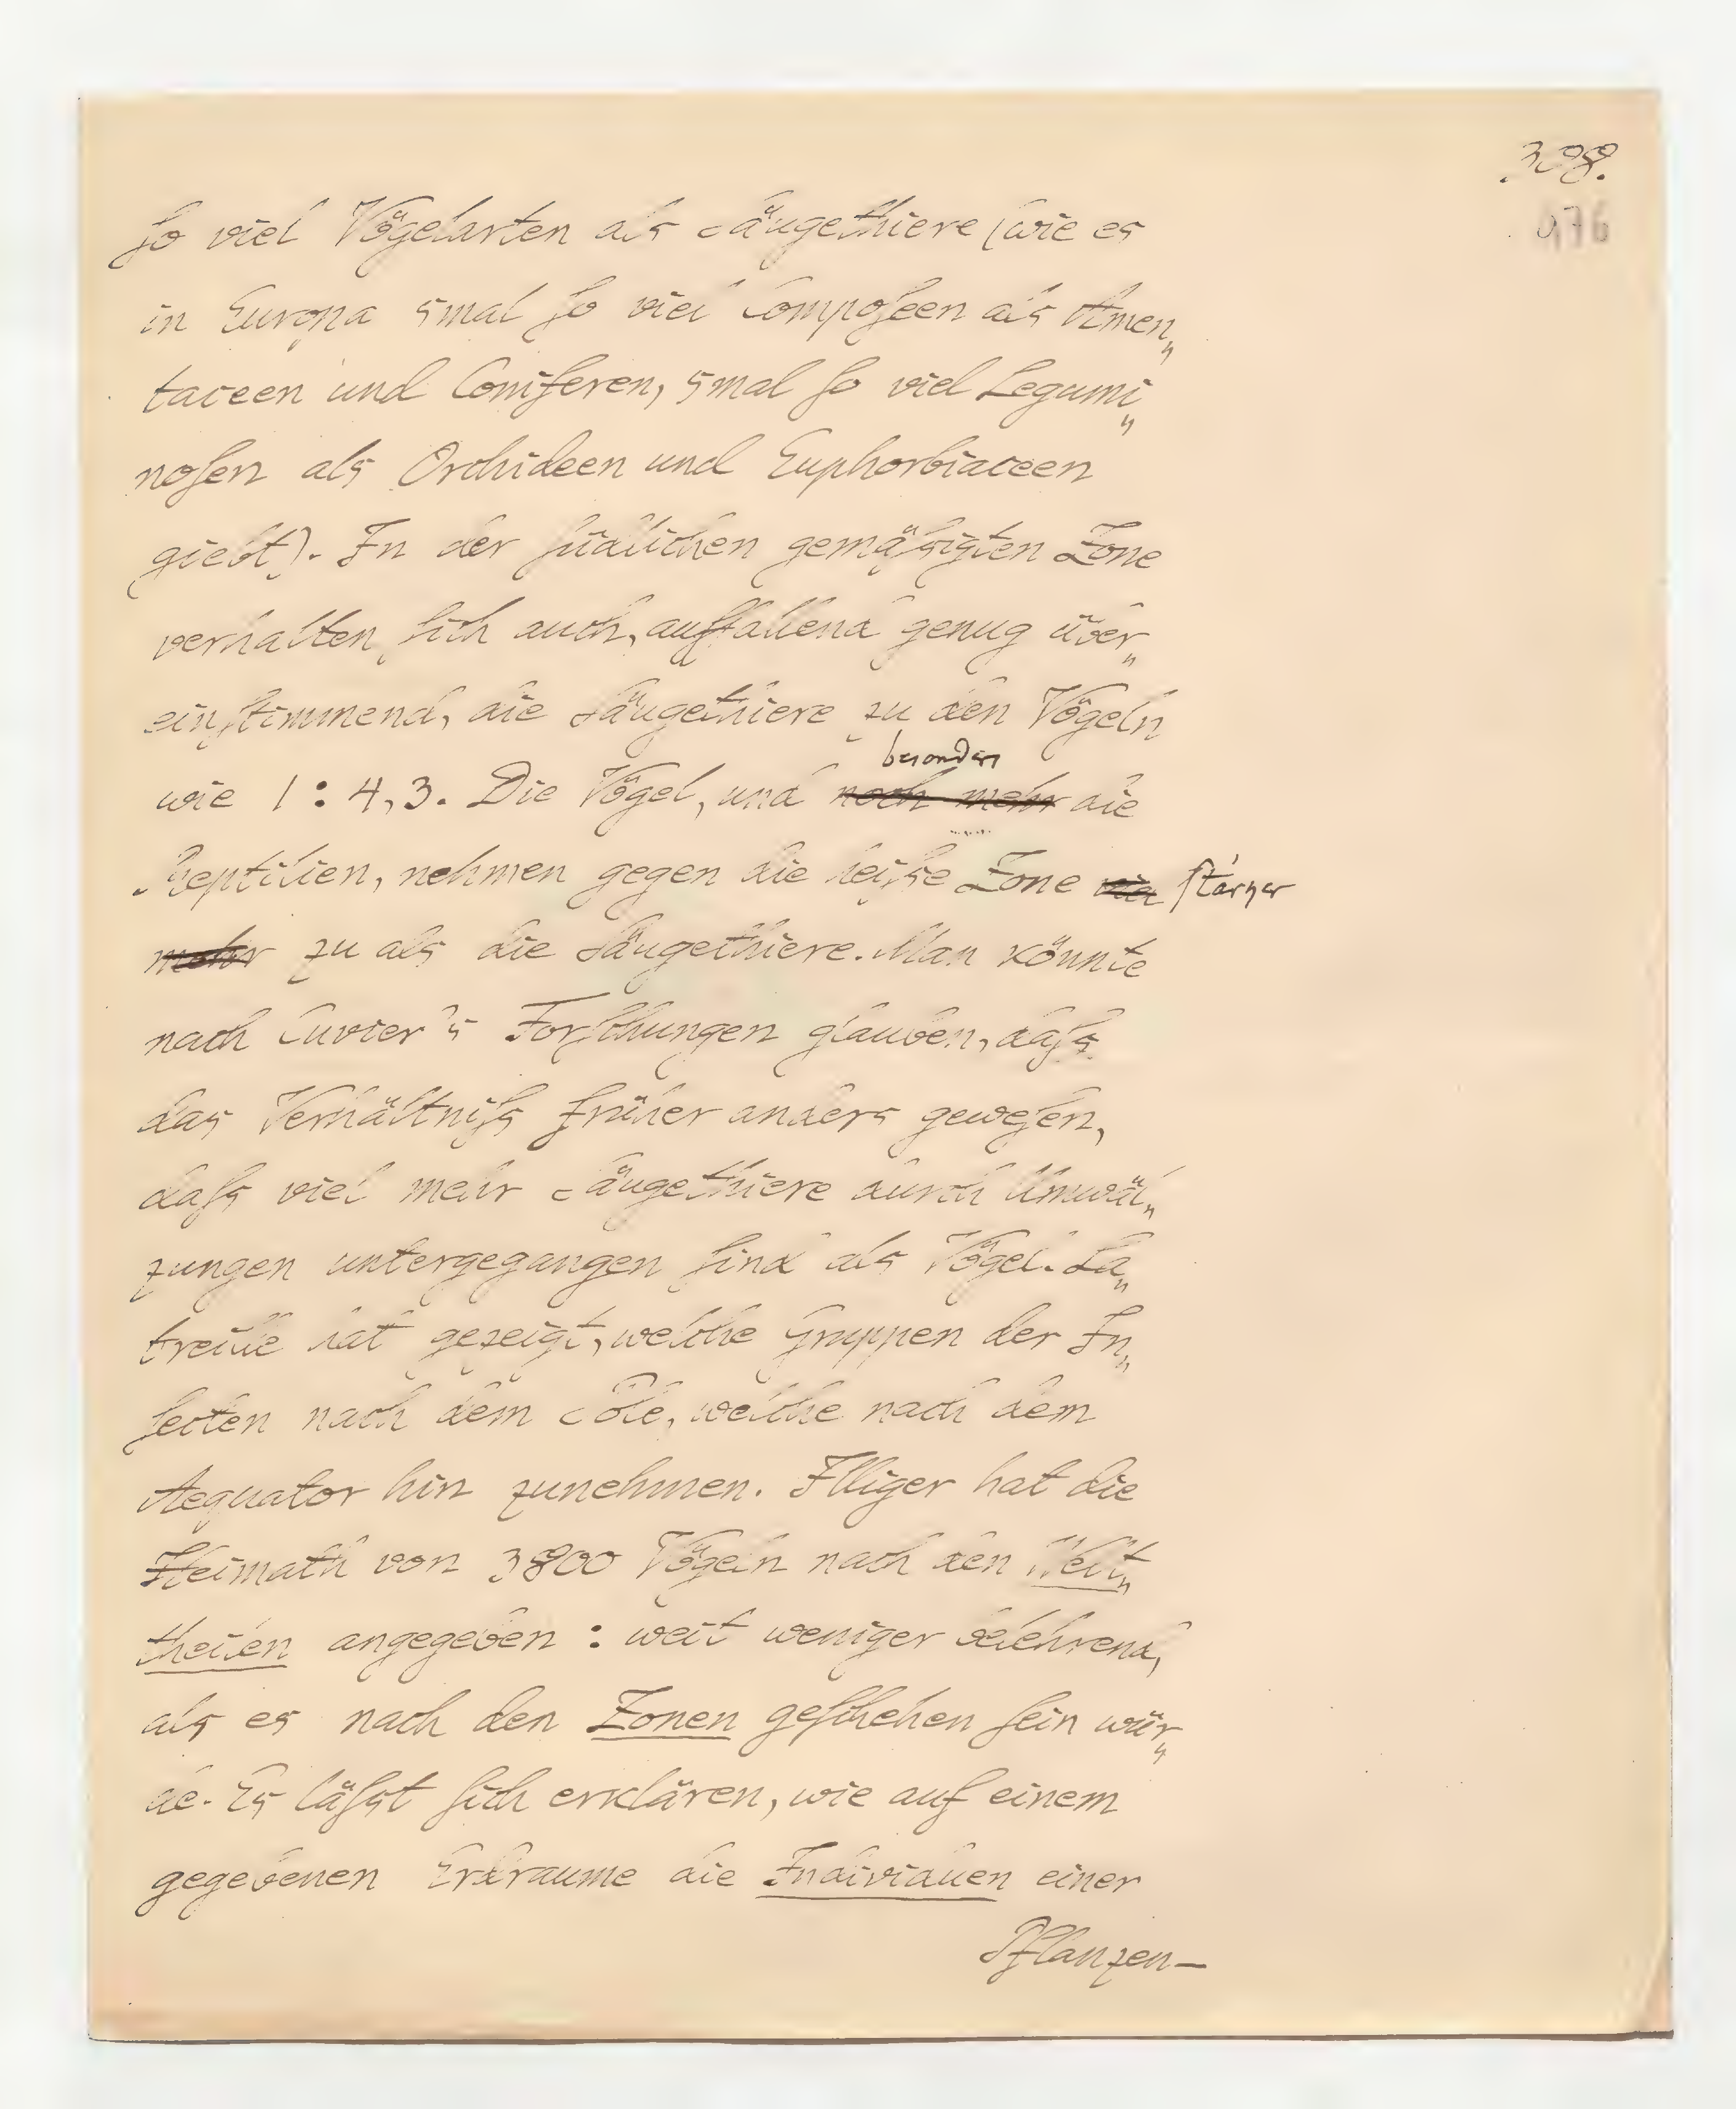 308.
976
ſo viel Vögelarten als Säugethiere (wie es
in Europa 5mal ſo viel Compoſeen als Amen„
taceen und Coniferen, 5mal ſo viel Legumi„
noſen als Orchideen und Euphorbiaceen
giebt). In der ſüdlichen gemäſsigten Zone
verhalten ſich auch, auffallend genug über„
einſtimmend, die Säugethiere zu den Vögeln
besonders
wie 1 : 4,3. Die Vögel, und noch mehr die
Reptilien, nehmen gegen die heiſse Zone viel ſtärker
mehr zu als die Säugethiere. Man könnte
nach Cuvier's Forſchungen glauben, daſs
das Verhältniſs früher anders geweſen,
daſs viel mehr Säugethiere durch Umwäl„
zungen untergegangen ſind als Vögel. La„
treille hat gezeigt, welche Gruppen der In„
ſecten nach dem Pole, welche nach dem
Aequator hin zunehmen. Illiger hat die
Heimath von 3800 Vögeln nach den Welt„
theilen angegeben : weit weniger belehrend,
als es nach den Zonen geſchehen ſein wür„
de. Es läſst ſich erklären, wie auf einem
gegebenen Erdraume die Individuen einer
Pflanzen-